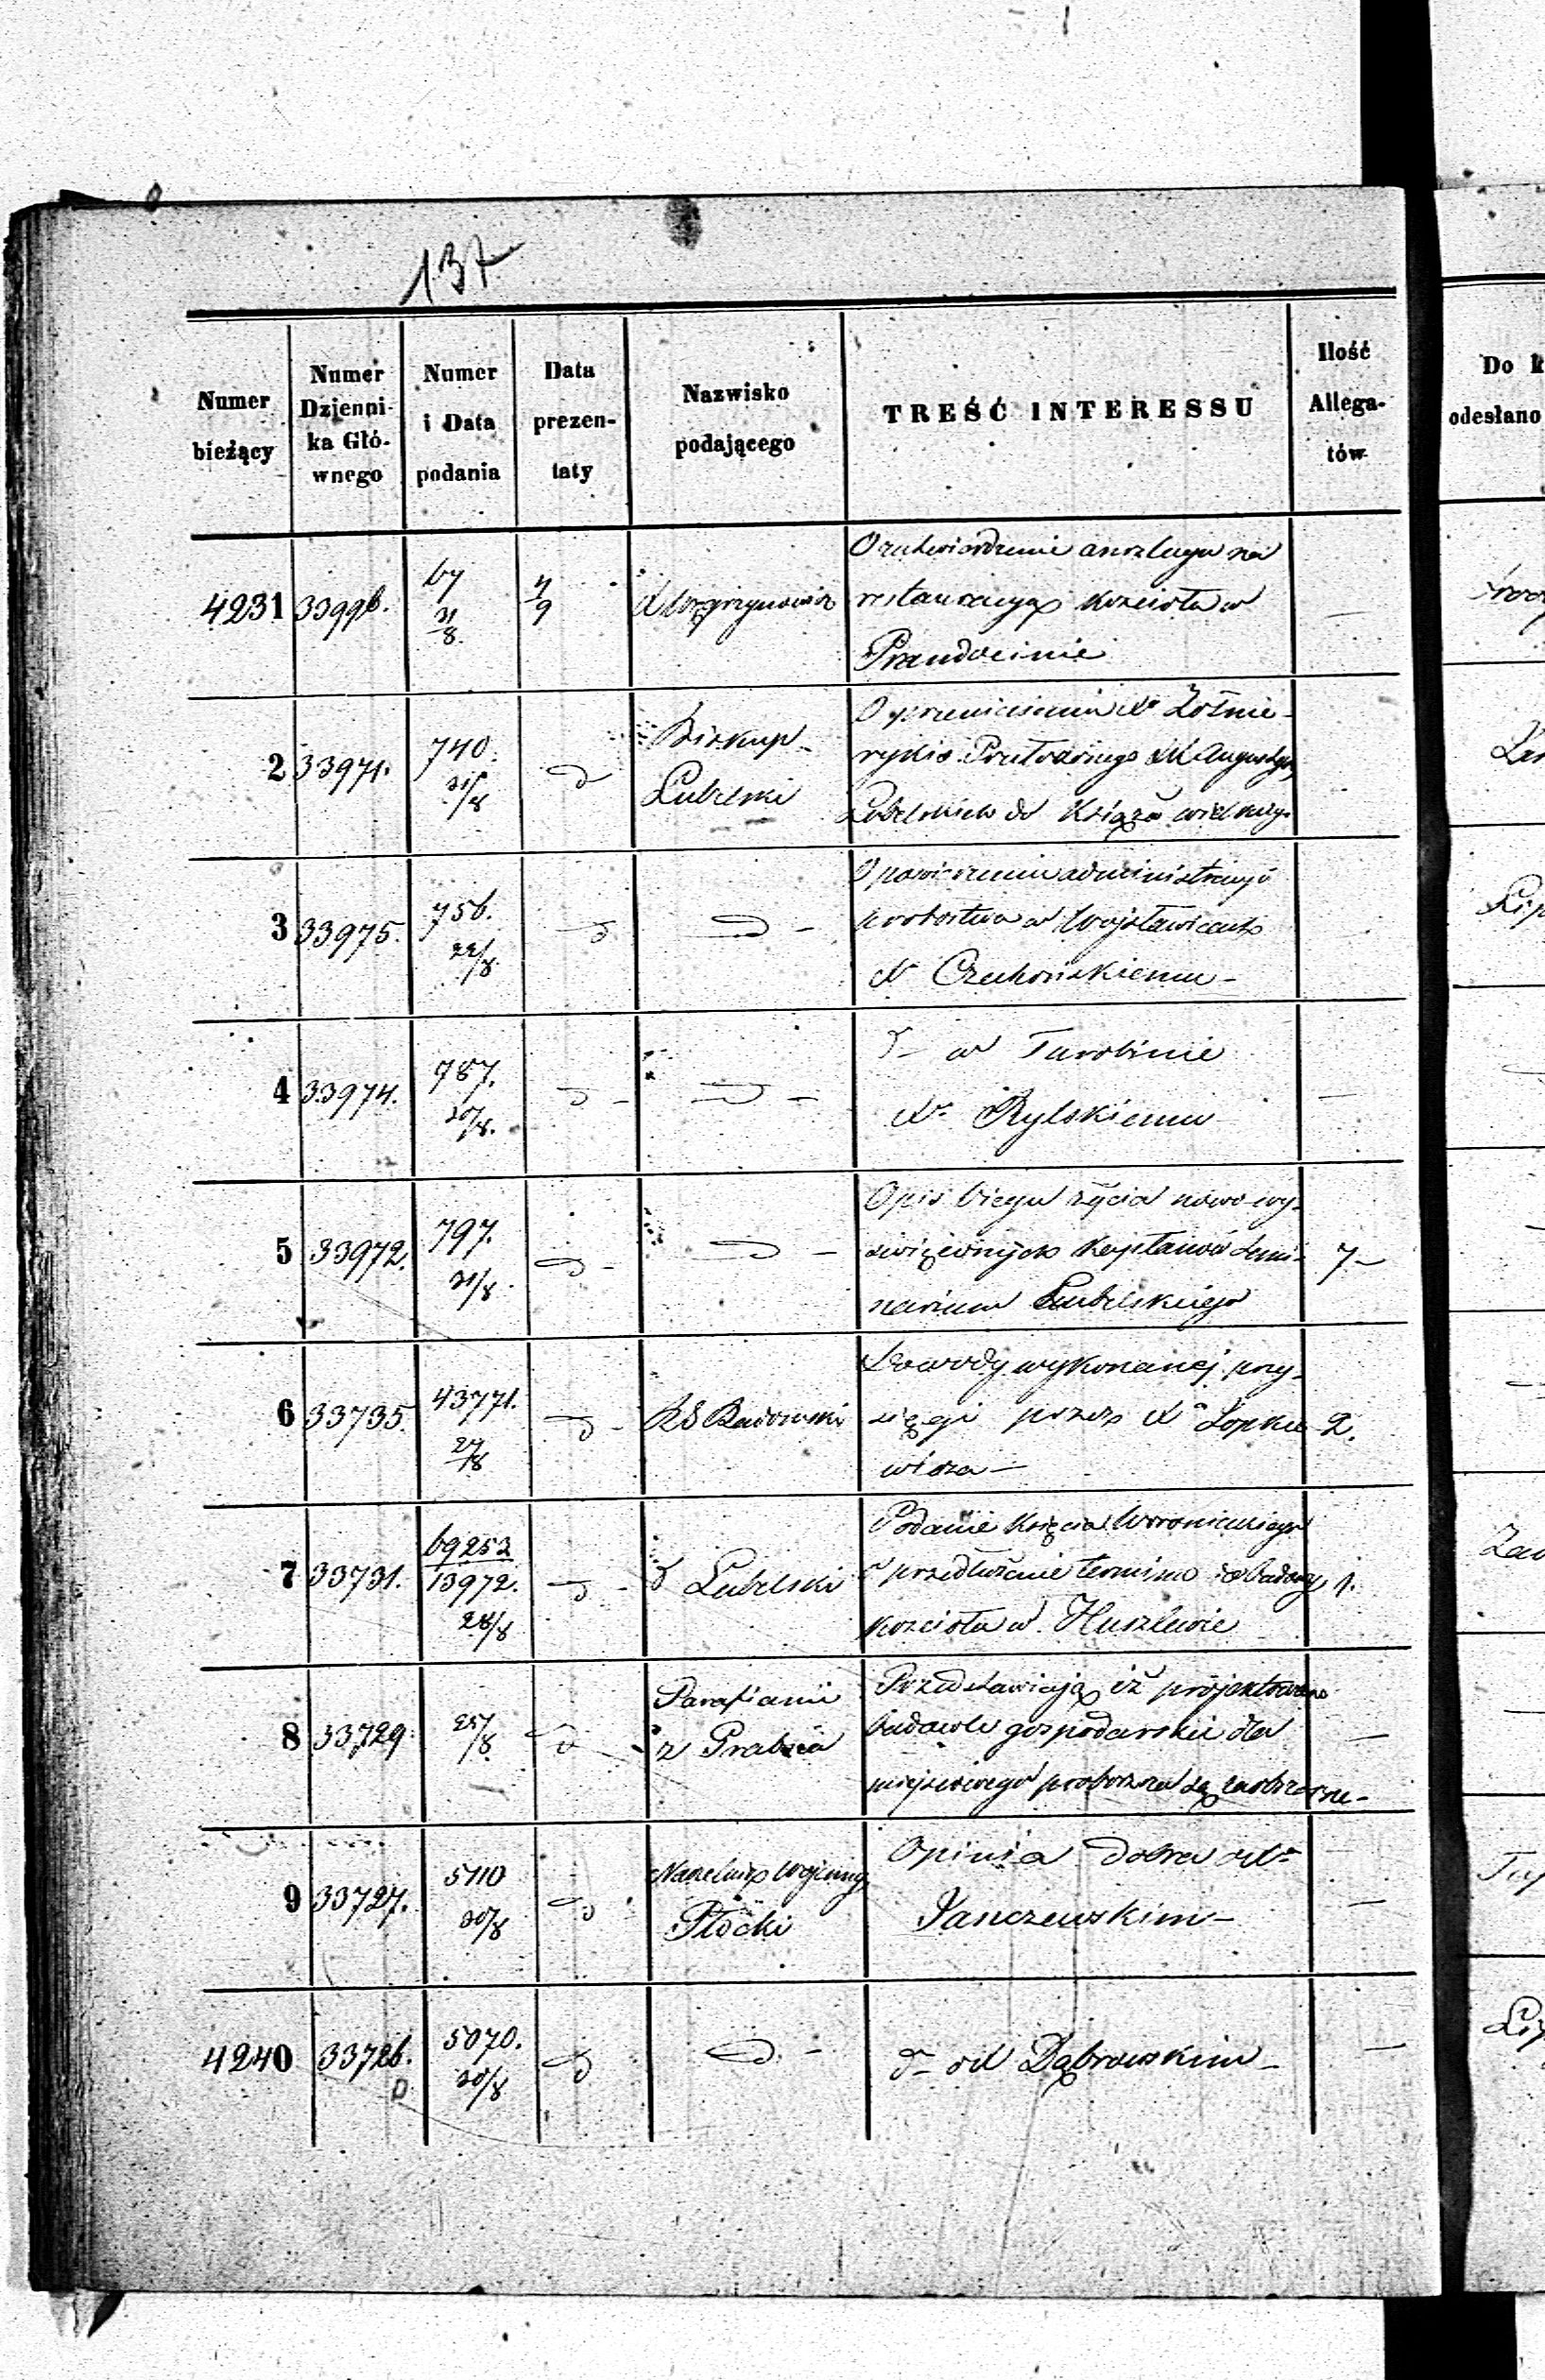 137
Numer bieżący | Numer Dzienni-ka Głó-wnego | Numer i Data podania | Data prezen-taty | Nazwisko podającego | TREŚĆ INTERESSU | Ilość Allega-tów | Do k odesłano
4231 | 33996. | 67 31/8. | 4/9 | O zatwierdzenie anszlagu na
restauracyą kościoła w
Prandocinie
2 | 33971. | 740. 31/8 | d | Biskup Lubelski | O przeniesieniu Xa Żołnie-
rykie
Lubelskich do Książa wielkiego
3 | 33975. | 756. 22/8 | d | d - | O powierzeniu administracyi
probostwa w Wojsławicach
X Czechońskiemu -
4 | 33974. | 787. 30/8. | d - | d - | d - w Turobinie
Xo Rylskiemu
5 | 33972. | 797. 31/8 | d - | d - | Opis biegu życia nowo wy-
święconych Kapłanów Semi-
narium Lubelskiego | 7 -
6 | 33735. | 43771. 27/8 | d - | RG Radomski | Dowody wykonanej przy-
sięgi przez Xa Łopkie-
wicza - | 2.
7 | 33731. | 69253/13972. 28/8 | d - | d Lubelski | Podanie Księcia Woronieckiego
o przedłużenie terminu do budowy
kościoła w Huszlewie | 1.
8 | 33729 | 25/8 | d | Parafianie z | Przedstawiają iż projektowane
budowle gospodarskie dla
miejscowego proboszcza są za obszerne -
9 | 33727. | 5110 30/8 | d | Naczelnik Wojenny Płocki | Opinia dobra o Xu
Janczewskim -
4240 | 33726. | 5070. 30/8 | d | d - | d - o X Dąbrowskim -